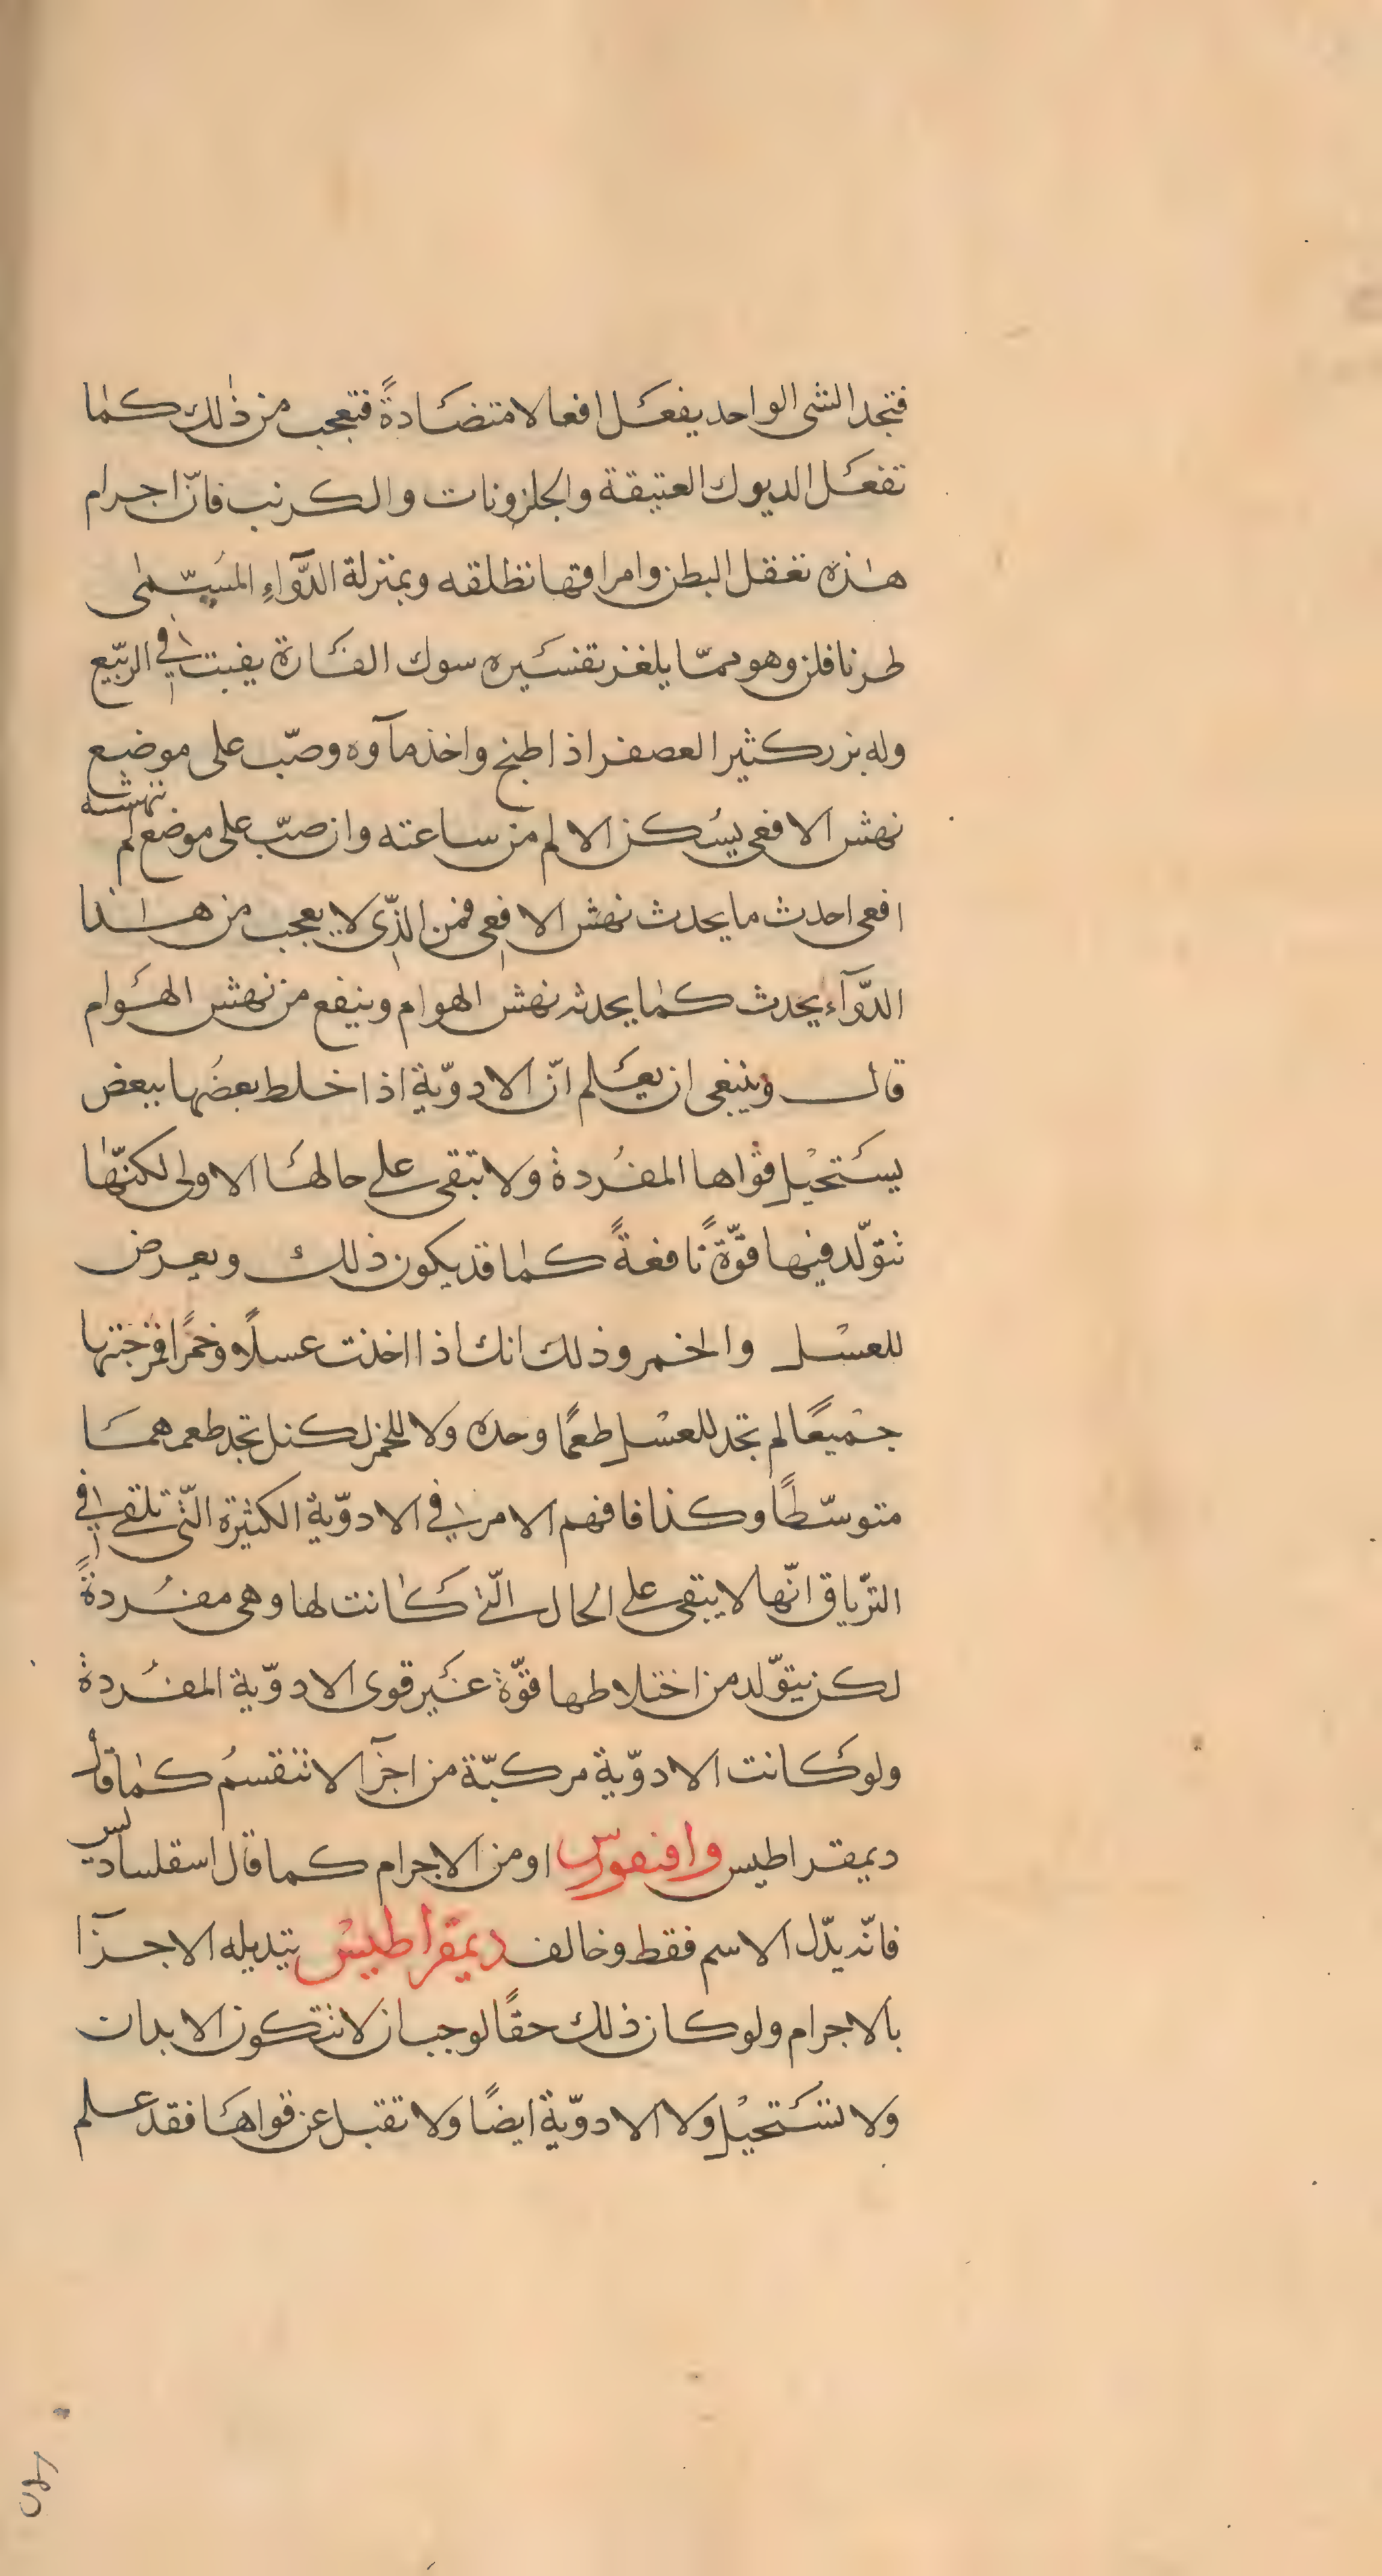 فتجد الشى الواحد يفعَل افعالا متضَادةً فتعجب من ذٰلك كمٰا
تفعَل الديوك العتيقة والجلزونات والكرنب فانّ اجرام
هٰذه تعقل البطن وامراقها تطلقه وبمنزلة الدّوآءِ المسَمّٰى
طرنافلن وهو ممّا يلغز تفسَيره سوك الفَارة يفبت فى الربّيع
وله بزر كثير العصفر اذا طبخ واخذ مآوه وصبّ على موضع
نهش الافعى يسُكن الالم من ساعته وان صبّ على موضع لم تنهشه
افعى احدث ما يحدث نهش الافعى فمن الذّى لا يعجب من هٰذا
الدّوآء يحدث كمٰا يحدثه نهش الهوام وينفع من نهش الهَوام
قال وينبغى ان يعَلم انّ الادوّية اذا خلط بعضُها ببعض
يسَتحيْل قوٰاها المفُردة ولا تبقى على حالهَا الاولى لكنّهٰا
تتوّلد فيها قوّةً نافعةً كمٰا قد يكون ذلك ويعرض
للعسْل والخمر وذلك انك اذا اخذت عسلًا وخمرًا فمزجتها
جْميعًا لم تجد للعسْل طعمًا وحده ولا للخمر لكنل تجد طعمهمَا
متوسّطًا وكذا فافهم الامر فى الادوّية الكثيرة التّى تلقى فى
الترّياق انّها لا يبقى على الحال التّى كَانت لها وهى مفُردةً
لكن يتوّلد من اختلاطها قوّة غَير قوى الادوّية المفُردة
ولو كَانت الادوّية مركبّة من اجزآ لا تنقسمُ كمٰا قال
ديمقراطيس وافنفورس او من الاجرام كما قال اسقلسادس
فانّه بدّل الاسم فقط وخالف ديمقراطيسْ بتبديله الاجزآ
بالاجرام ولو كان ذلك حقًا لوجب ان لا تتكون الابدان
ولا تسَتحيْل ولا الادوّية ايضًا ولا تقبل عن قواهَا فقد علم